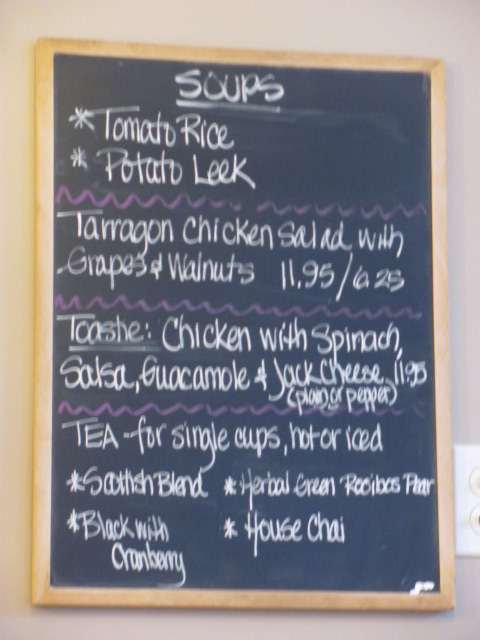 SOUPS
* Tomato Rice
* Potato Leek
Tarragon Chicken Salad with
Grapes & Walnuts 11.95/6.25
Toastie: Chicken with Spinach,
Salsa, Guacamole & Jack Cheese 11.95
(plain or pepper)
TEA - for single cups, hot or iced
* Scottish Blend * Herbal Green Rooibos Pear
* Black with * House Chai
Cranberry